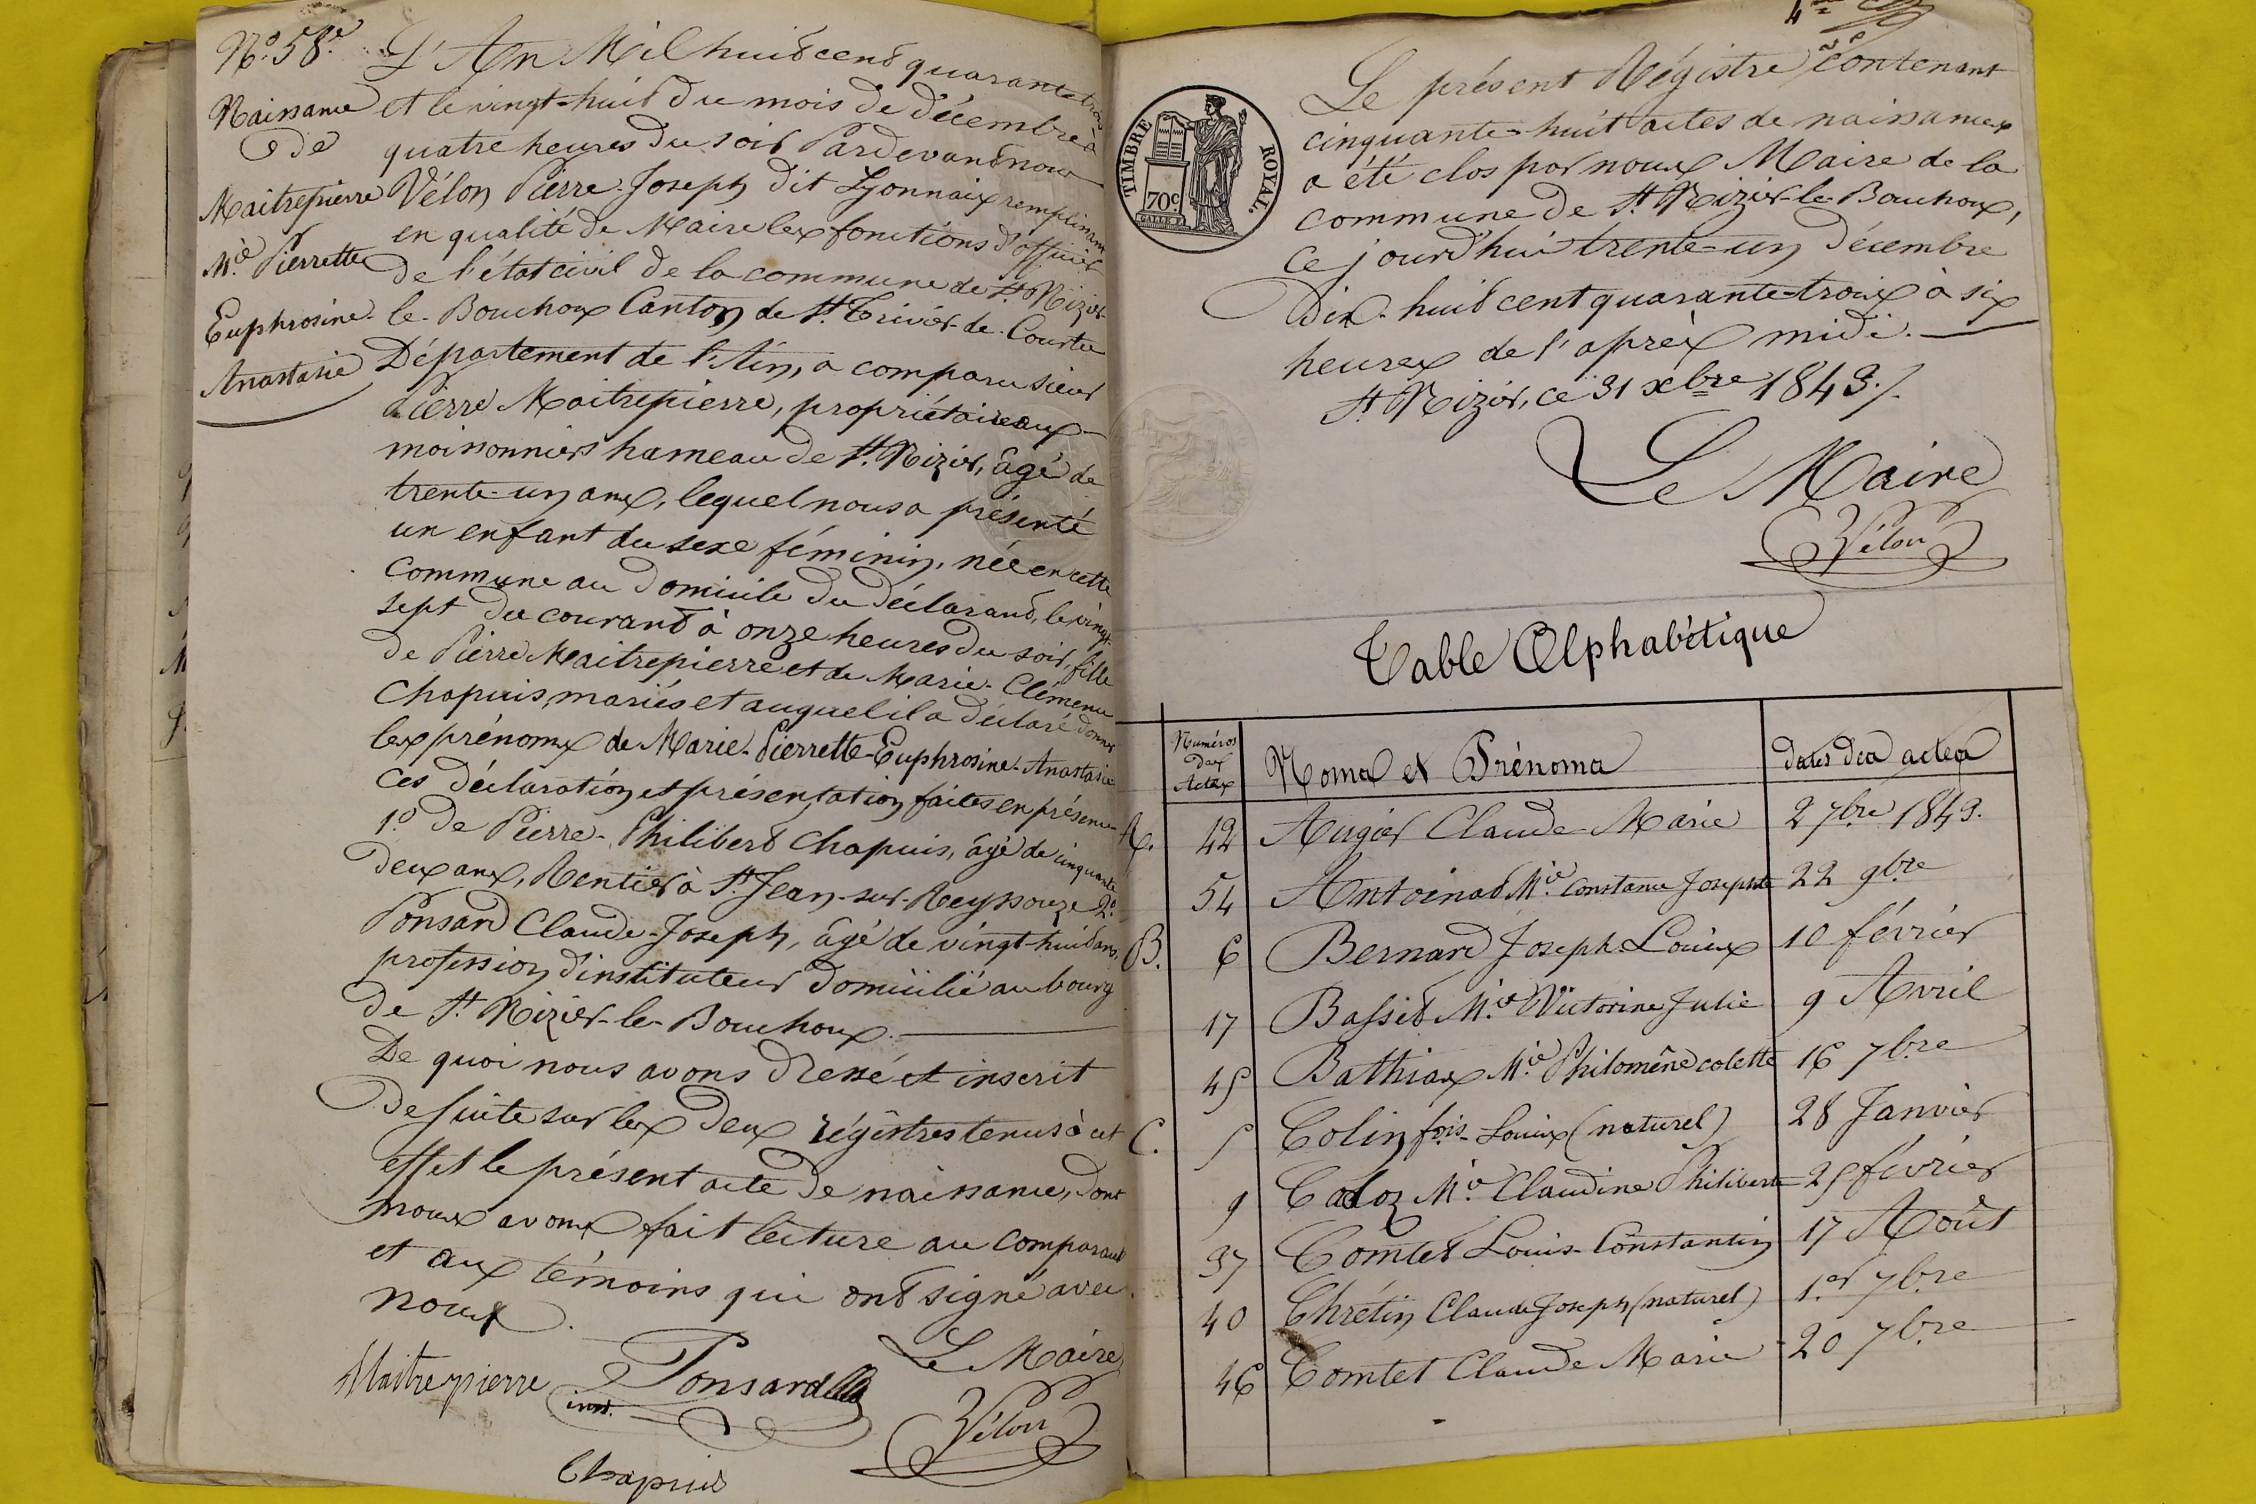 N.º 58.e
Naissance
de
Maitrepierre
M.ie Pierrette
Euphrosine-
Anastasie
L'An Mil huit cent quarante trois
et le vingt-huit du mois de décembre à
quatre heures du soir Pardevant nous
Vélon Pierre-Joseph dit Lyonnais remplissant
en qualité de Maire les fonctions d'officier
de l'état civil de la commune de St Nizier-
le-Bouchoux Canton de St Trivier-de-Courtes
Département de l'Ain, a comparu sieur
Pierre Maitrepierre, propriétaire aux
moissonniers hameau de St Nizier, âgé de
trente-un ans, lequel nous a présenté
un enfant du sexe féminin, née en cette
commune au domicile du déclarant, le vingt-
sept du courant à onze heures du soir, fille
de Pierre Maitrepierre et de Marie-Clémence
Chapuis, mariés et auquel il a déclaré donner
les prénoms de Marie-Pierrette-Euphrosine-Anastasie
ces déclaration et présentation faites en présence
1.º de Pierre-Philibert Chapuis, âgé de cinquante
deux ans, Rentier à St Jean-sur-Reyssouze 2.º
Ponsard Claude-Joseph, âgé de vingt-huit ans,
profession d'instituteur domicilié au bourg
de St Nizier-le-Bouchoux.
De quoi nous avons dressé et inscrit
de suite sur les deux régistres tenus à cet
effet le présent acte de naissance, dont
nous avons fait lecture au comparant
et aux témoins qui ont signé avec
nous.
Maitrepierre Ponsard Le Maire
inst. Vélon
Chapuis
4.me
Le présent Régistre contenant
cinquante-huit actes de naissances
a été clos par nous Maire de la
commune de St Nizier-le-Bouchoux,
ce jourd'hui trente-un décembre
dix-huit cent quarante-trois à six
heures de l'après midi.
St Nizier, ce 31 xbre 1843./.
Le Maire
Vélon
TIMBRE ROYAL.
70c
Table Alphabétique
Numéros des Actes Noms et Prénoms dates des actes
A. 42 Augier Claude-Marie 2 7bre 1843.
54 Antoinat M.ie Constance Josephte 22 9bre
B. 6 Bernard Joseph-Louis 10 février
17 Bassit M.ie Victorine Julie 9 Avril
45 Bathiax M.ie Philomène colette 16 7bre
C. 5 Colin fois-Louis (naturel) 28 Janvier
9 Cadoz M.ie Claudine Philiberte 25 février
37 Comtet Louis-Constantin 17 Août
40 Chrétin Claude Joseph (naturel) 1.er 7bre
46 Comtet Claude Marie 20 7bre